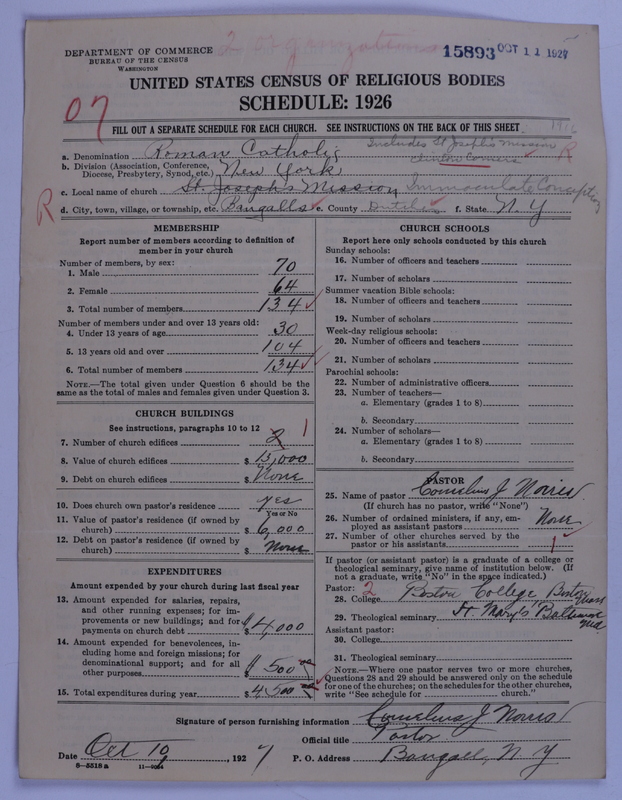 DEPARTMENT OF COMMERCE
BUREAU OF THE CENSUS
WASHINGTON
2 organizations
15893 OCT 11 1927
UNITED STATES CENSUS OF RELIGIOUS BODIES
SCHEDULE: 1926
07
FILL OUT A SEPARATE SCHEDULE FOR EACH CHURCH. SEE INSTRUCTIONS ON THE BACK OF THIS SHEET
1916
a. Denomination Roman Catholic
Includes St Joseph's Mission
Clinton Corners R
b. Division (Association, Conference, Diocese, Presbytery, Synod, etc.) New York
c. Local name of church St. Joseph's Mission Immaculate Conception
R d. City, town, village, or township, etc. Bangalls e. County Dutchess f. State N. Y
MEMBERSHIP
Report number of members according to definition of
member in your church
Number of members, by sex:
1. Male 70
2. Female 64
3. Total number of members 134
Number of members under and over 13 years old:
4. Under 13 years of age 30
5. 13 years old and over 104
6. Total number of members 134
NOTE.—The total given under Question 6 should be the
same as the total of males and females given under Question 3.
CHURCH BUILDINGS
See instructions, paragraphs 10 to 12
7. Number of church edifices 2 1
8. Value of church edifices $ 15,000
9. Debt on church edifices $ None
10. Does church own pastor's residence yes
Yes or No
11. Value of pastor's residence (if owned by
church) $ 6,000
12. Debt on pastor's residence (if owned by
church) $ None
EXPENDITURES
Amount expended by your church during last fiscal year
13. Amount expended for salaries, repairs,
and other running expenses; for im-
provements or new buildings; and for
payments on church debt $ 4,000
14. Amount expended for benevolences, in-
cluding home and foreign missions; for
denominational support; and for all
other purposes $ 500
15. Total expenditures during year $ 4500
CHURCH SCHOOLS
Report here only schools conducted by this church
Sunday schools:
16. Number of officers and teachers
17. Number of scholars
Summer vacation Bible schools:
18. Number of officers and teachers
19. Number of scholars
Week-day religious schools:
20. Number of officers and teachers
21. Number of scholars
Parochial schools:
22. Number of administrative officers
23. Number of teachers—
a. Elementary (grades 1 to 8)
b. Secondary
24. Number of scholars—
a. Elementary (grades 1 to 8)
b. Secondary
PASTOR
25. Name of pastor Cornelius J Norris
(If church has no pastor, write "None")
26. Number of ordained ministers, if any, em-
ployed as assistant pastors None
27. Number of other churches served by the
pastor or his assistants 1
If pastor (or assistant pastor) is a graduate of a college or
theological seminary, give name of institution below. (If
not a graduate, write "No" in the space indicated.)
Pastor: 2
28. College Boston College Boston Mass
29. Theological seminary St. Mary's Baltimore Md
Assistant pastor:
30. College
31. Theological seminary
NOTE.—Where one pastor serves two or more churches,
Questions 28 and 29 should be answered only on the schedule
for one of the churches; on the schedules for the other churches,
write "See schedule for church."
Signature of person furnishing information Cornelius J Norris
Official title Pastor
Date Oct 10, 1927 P. O. Address Bangall, N. Y
8—5518 a